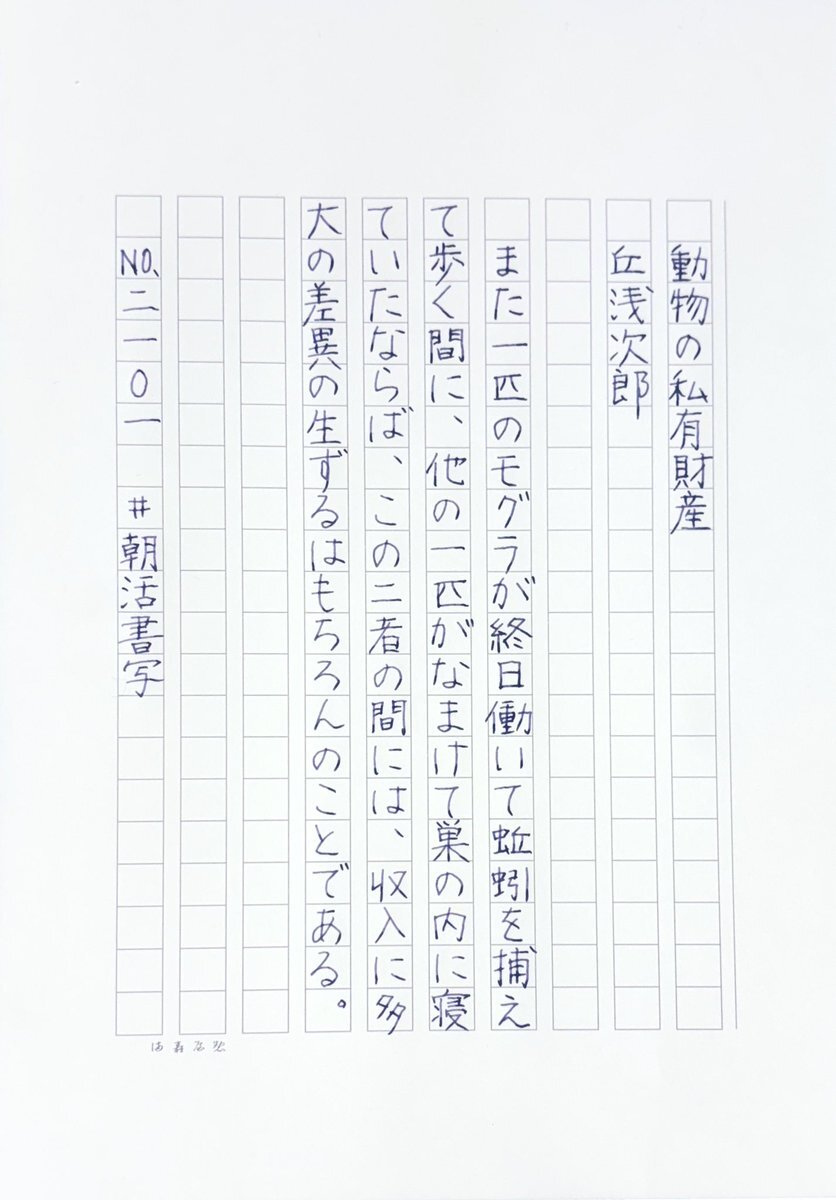 動物の私有財産
丘浅次郎
また一匹のモグラが終日働いて蚯蚓を捕え
て歩く間に、他の一匹がなまけて巣の内に寝
ていたならば、この二者の間には、収入に多
大の差異の生ずるはもちろんのことである。
NO、二一〇一 #朝活書写